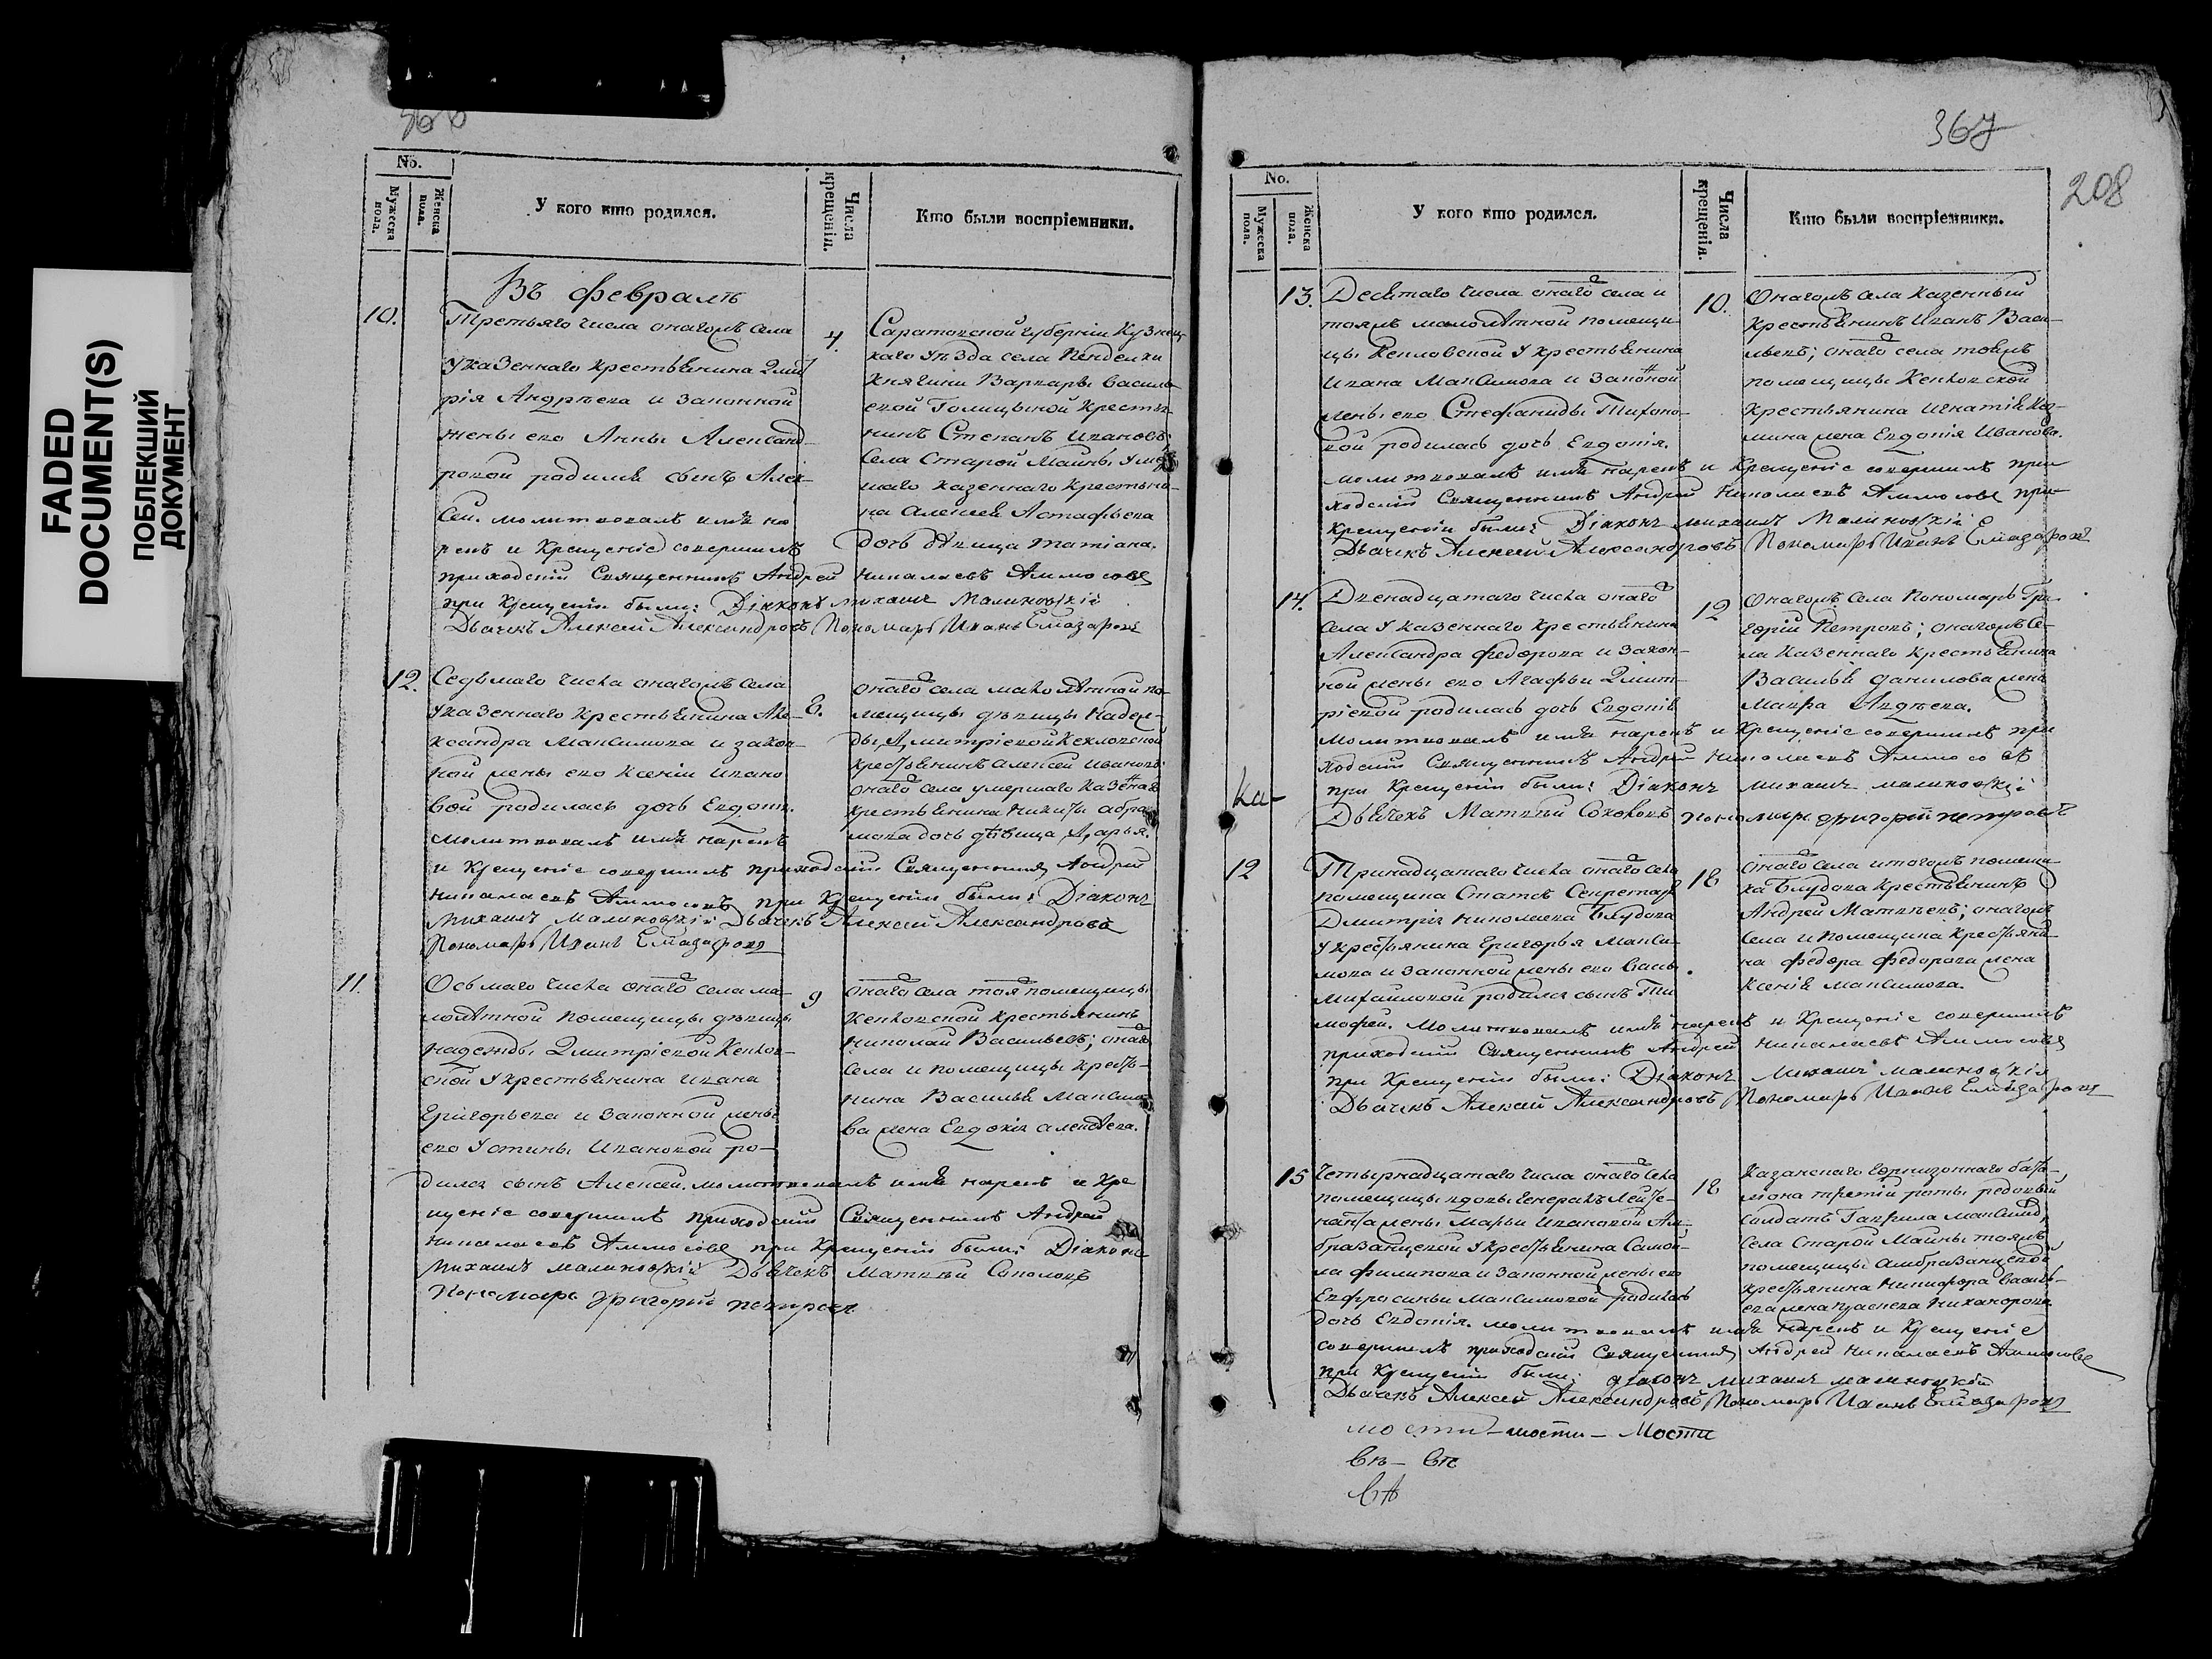 FADED
DOCUMENT(S)
ПОБЛЕКШИЙ
ДОКУМЕНТ
366
No.
Мужеска пола.
Женска пола.
У кого кто родился.
Числа крещенія.
Кто были воспріемники.
Въ февралѣ
10.
Третьяго числа онагожъ села
у казеннаго крестьянина Дмит
рія Андрѣева и законной
жены его Анны Александ-
ровой родился сынъ Алек-
сей. молитвовалъ имя на
рекъ и крещеніе совершилъ
приходскій Священникъ Андрей Николаевъ Аммосовъ
при крещеніи были: Діаконъ михаилъ Малиновскій
Дьячекъ Алексей Александровъ Пономарь Иванъ Елиазаровъ
4.
Саратовской губерніи Кузнец-
каго уѣзда села Пенделки
Княгини Варвары Василь-
евой Голицыной крестья-
нинъ Степанъ Ивановъ;
Села Старой Майны умер
шаго казеннаго крестьяни-
на Алексея Астафьева
дочь дѣвица татіана.
12.
Седьмаго числа онагожъ села
у казеннаго крестьянина Але-
ксандра Максимова и закон-
ной жены его Ксеніи Ивано
вой родилась дочь Евдокія.
молитвовалъ имя нарекъ
и крещеніе совершилъ приходскій Священникъ Андрей
Николаевъ Аммосовъ при крещеніи были: Діаконъ
Михаилъ Малиновскій Дьячекъ Алексей Александровъ
Пономарь Иванъ Елиазаровъ
8.
онаго села малолѣтной по-
мещицы дѣвицы Надеж-
ды Дмитріевой Кекловской
крестьянинъ Алексей Ивановъ;
онаго села умершаго казенна
крестьянина Никиты абра
мова дочь дѣвица Дарья.
11.
Осьмаго числа онаго села ма-
молѣтной помещицы дѣвицы
надежды Дмитріевой Кеклов-
ской у крестьянина Ивана
Григорьева и законной жены
его Устины Ивановой ро-
дился сынъ Алексей. молитвовалъ имя нарекъ и кре
щеніе совершилъ приходскій Священникъ Андрей
Николаевъ Аммосовъ при крещеніи были: Діаконъ
михаилъ малиновскій Дьячекъ Матвей Соколовъ
Пономарь Григорій петровъ
9
онаго села тояжъ помещицы
Кекловской крестьянинъ
Николай Васильевъ; онаго
села и помещицы кресть-
нина Василья Максимо
ва жена Евдокія алексѣева.
367
208
No.
Мужеска пола.
Женска пола.
У кого кто родился.
Числа крещенія.
Кто были воспріемники.
13.
Десятаго числа онаго села и
тояжъ малолѣтной помещи-
цы Кекловской у крестьянина
Ивана Максимова и законной
жены его Стефаниды Тихоно-
вой родилась дочь Евдокія.
молитвовалъ имя нарекъ и крещеніе совершилъ при
ходскій Священникъ Андрей Николаевъ Аммосовъ при
крещеніи были: Діаконъ михаилъ Малиновскій
Дьячекъ Алексей Александровъ Пономарь Иванъ Елиазаровъ
10.
Онагожъ села казенный
крестьянинъ Иванъ Васи-
льевъ; онаго села тояжъ
помещицы Кекловской
крестьянина Игнатія Коз-
мина жена Евдокія Иванова.
14.
Двенадцатаго числа онаго
села у казеннаго крестьянина
Александра федорова и закон-
ной жены его Агафьи Дмит-
ріевой родилась дочь Евдокія
молитвовалъ имя нарекъ и крещеніе совершилъ при
ходскій Священникъ Андрей Николаевъ Аммосовъ
при крещеніи были: Діаконъ михаилъ малиновскій
Дьячекъ Матвей Соколовъ пономарь григорій петровъ
12
Онагожъ села Пономарь Гри-
горій Петровъ; онагожъ се-
ла казеннаго крестьянина
Василья данилова жена
Мавра Авдѣева.
Ка-
12
Тринадцатаго числа онаго села
помещика Статсъ Секретаря
Дмитрія Николаева Блудова
у крестьянина Григорья Макси-
мова и законной жены его Васы
михайловой родился сынъ Ти
мофей. Молитвовалъ имя нарекъ и крещеніе совершилъ
приходскій Священникъ Андрей Николаевъ Аммосовъ
при крещеніи были: Діаконъ Михаилъ Малиновскій
Дьячекъ Алексей Александровъ Пономарь Иванъ Елиазаровъ
18
онаго села итогожъ помещи-
ка Блудова крестьянинъ
Андрей Матвѣевъ; онагожъ
села и помещика крестьяни-
на федора федорова жена
Ксенія максимова.
15
Четырнадцатаго числа онаго села
помещицы вдовы генералъ Лейте-
нанта жены Марьи Ивановой Ам-
бразанцевой у крестьянина Самой-
ла филипова и законной жены его
Евфросиньи Максимовой родилась
дочь Евдокія. молитвовалъ имя нарекъ и крещеніе
совершилъ приходскій Священникъ Андрей Николаевъ Аммосовъ
при крещеніи были: діаконъ михаилъ малиновскій
Дьячекъ Алексей Александровъ Пономарь Иванъ Елиазаровъ
18
Казанскаго гарнизоннаго бата-
лiона третій роты редовый
солдатъ Гаврила Максимов,
Села Старой Майны тояжъ
помещицы амбразанцевой
крестьянина Никифора Василь-
ева жена Никанорова.
мости-мости-Мости
Вѣ- Вѣ